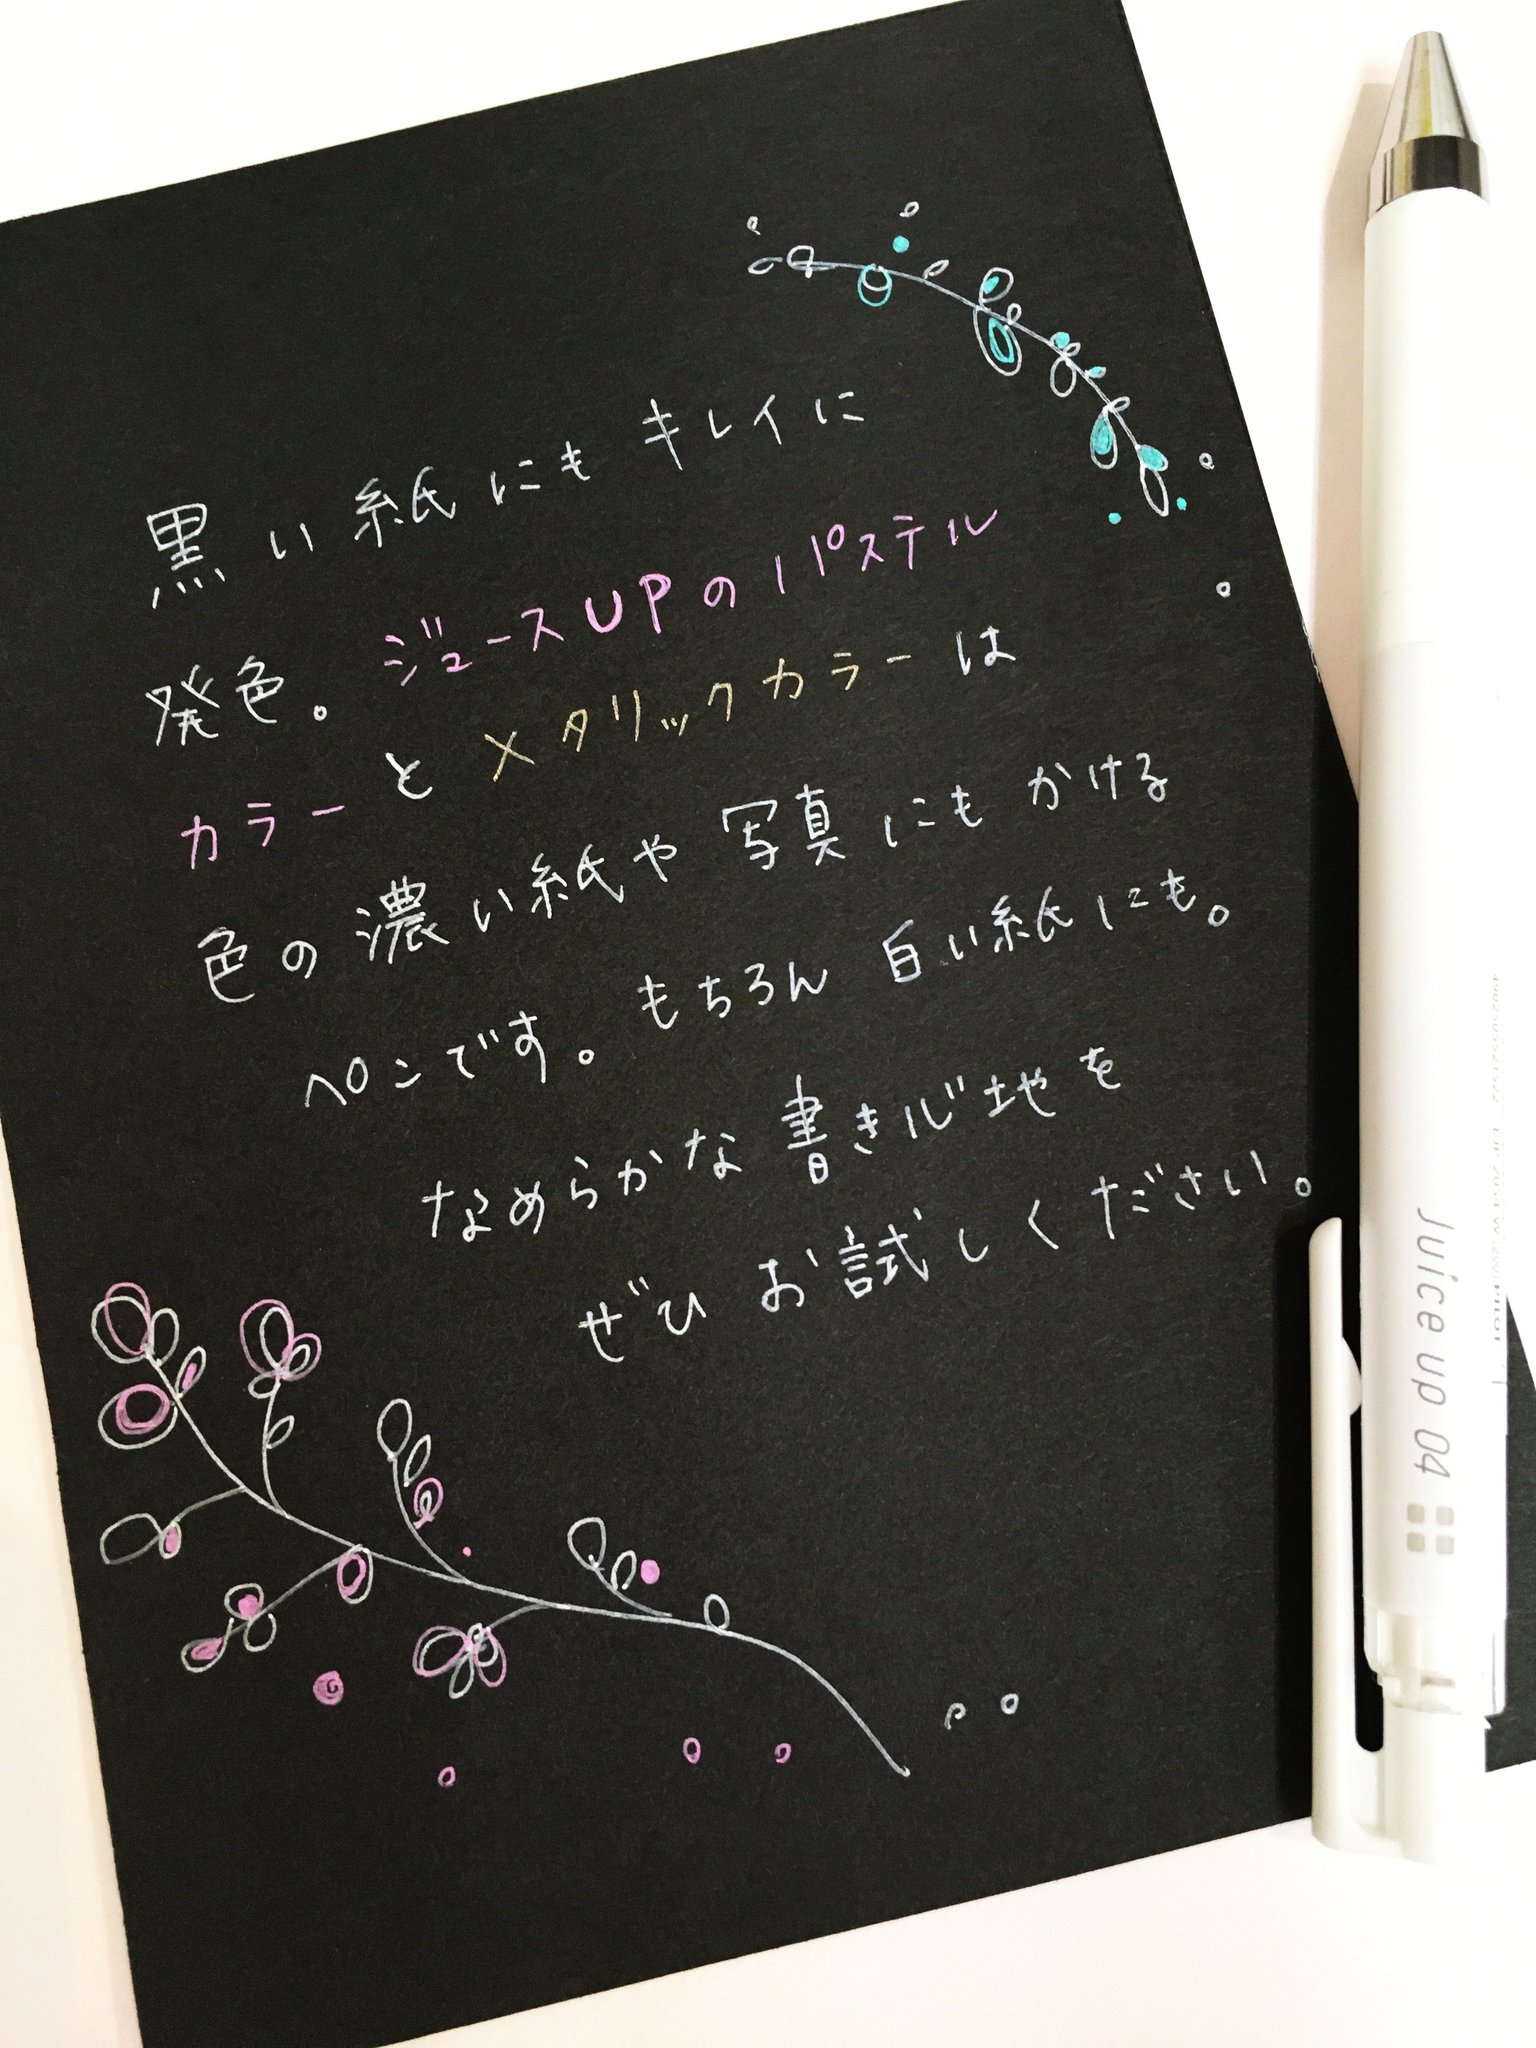 黒い紙にもキレイに
発色。ジュースUPのパステル
カラーとメタリックカラーは
色の濃い紙や写真にもかける
ペンです。もちろん白い紙にも。
なめらかな書き心地を
ぜひお試しください。
Juice up 04
PILOT